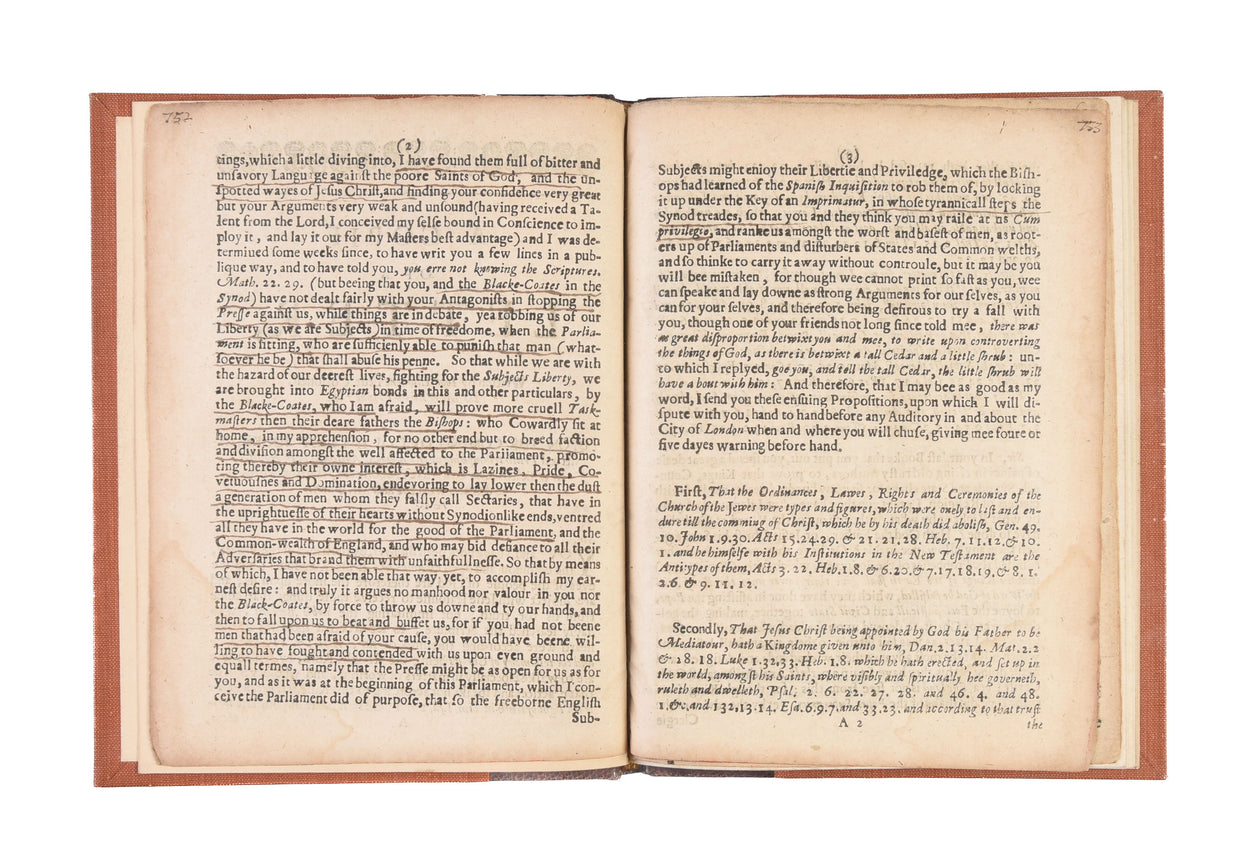 752
(2)
tings, which a little diving into, I have found them full of bitter and
unſavory Language againſt the poore Saints of God, and the un-
ſpotted wayes of Jeſus Chriſt, and finding your confidence very great
but your Arguments very weak and unſound (having received a Ta-
lent from the Lord, I conceived my ſelfe bound in Conſcience to im-
ploy it, and lay it out for my Maſters beſt advantage) and I was de-
termined ſome weeks ſince, to have writ you a few lines in a pub-
lique way, and to have told you, you erre not knowing the Scriptures.
Math. 22. 29. (but beeing that you, and the Blacke-Coates in the
Synod) have not dealt fairly with your Antagoniſts in ſtopping the
Preſſe againſt us, while things are in debate, yea robbing us of our
Liberty (as we are Subjects) in time of freedome, when the Parlia-
ment is ſitting, who are ſufficienly able to puniſh that man (what-
ſoever he be) that ſhall abuſe his penne. So that while we are with
the hazard of our deereſt lives, fighting for the Subjects Liberty, we
are brought into Egyptian bonds in this and other particulars, by
the Blacke-Coates, who I am afraid, will prove more cruell Task-
maſters then their deare fathers the Biſhops: who Cowardly ſit at
home, in my apprehenſion, for no other end but to breed faction
and diviſion amongſt the well affected to the Parliament, promo-
ting thereby their owne intereſt, which is Lazines, Pride, Co-
vetuouſnes and Domination, endevoring to lay lower then the duſt
a generation of men whom they falſly call Sectaries, that have in
the uprightueſſe of their hearts without Synodionlike ends, ventred
all they have in the world for the good of the Parliament, and the
Common-wealth of England, and who may bid defiance to all their
Adverſaries that brand them with unfaithfullneſſe. So that by means
of which, I have not been able that way yet, to accompliſh my ear-
neſt deſire: and truly it argues no manhood nor valour in you nor
the Black-Coates, by force to throw us downe and ty our hands, and
then to fall upon us to beat and buffet us, for if you had not beene
men that had been afraid of your cauſe, you would have beene wil-
ling to have fought and contended with us upon even ground and
equall termes, namely that the Preſſe might be as open for us as for
you, and as it was at the beginning of this Parliament, which I con-
ceive the Parliament did of purpoſe, that ſo the freeborne Engliſh
Sub-
753
(3)
Subjects might enjoy their Libertie and Priviledge, which the Biſh-
ops had learned of the Spaniſh Inquiſition to rob them of, by locking
it up under the Key of an Imprimatur, in whoſe tyrannicall ſteps the
Synod treades, ſo that you and they think you may raile at us Cum
privilegio, and ranke us amongſt the worſt and baſeſt of men, as root-
ers up of Parliaments and diſturbers of States and Common welths,
and ſo thinke to carry it away without controule, but it may be you
will bee miſtaken, for though wee cannot print ſo faſt as you, wee
can ſpeake and lay downe as ſtrong Arguments for our ſelves, as you
can for your ſelves, and therefore being deſirous to try a fall with
you, though one of your friends not long ſince told mee, there was
as great diſproportion betwixt you and mee, to write upon controverting
the things of God, as there is betwixt a tall Cedar and a little ſhrub: un-
to which I replyed, goe you, and tell the tall Cedar, the little ſhrub will
have a bout with him: And therefore, that I may bee as good as my
word, I ſend you theſe enſuing Propoſitions, upon which I will di-
ſpute with you, hand to hand before any Auditory in and about the
City of London when and where you will chuſe, giving mee foure or
five dayes warning before hand.
Firſt, That the Ordinances, Lawes, Rights and Ceremonies of the
Church of the Jewes were types and figures, which were onely to laſt and en-
dure till the comming of Chriſt, which he by his death did aboliſh, Gen. 49.
10. John 1.9.30. Acts 15.24.29. & 21. 21.28. Heb. 7. 11.12. & 10.
1. and he himſelfe with his Inſtitutions in the New Teſtament are the
Antitypes of them, Acts 3. 22. Heb. 1.8. & 6.20. & 7.17.18.19. & 8. 1.
2.6. & 9. 11. 12.
Secondly, That Jeſus Chriſt being appointed by God his Father to be
Mediatour, hath a Kingdome given unto him, Dan. 2. 13. 14. Mat. 2.2
& 28. 18. Luke 1.32.33. Heb. 1.8. which he hath erected, and ſet up in
the world, amongſt his Saints, where viſibly and ſpiritually hee governeth,
ruleth and dwelleth, Pſal. 2. 6. 22. 27. 28. and 46. 4. and 48.
1. &c. and 132, 13.14. Eſa. 6.9.7. and 33.23. and according to that truſt
A 2
the